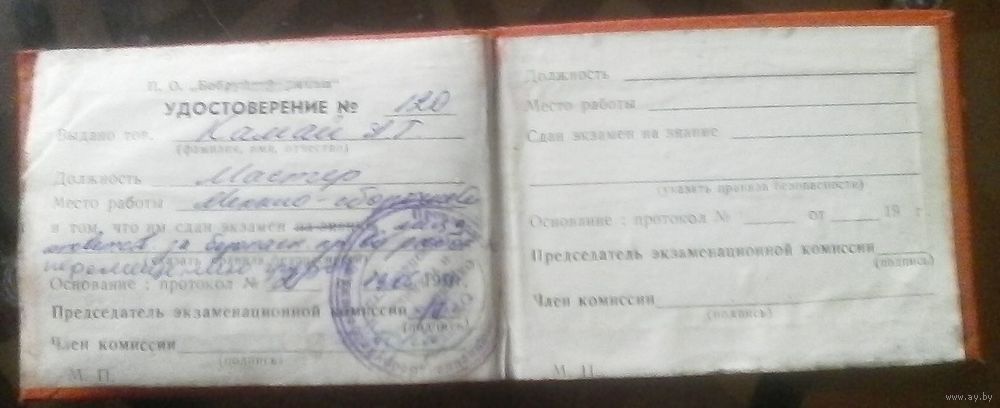 П. О.
УДОСТОВЕРЕНИЕ № 120
Выдано тов. Камай
(фамилия, имя, отчество)
Должность Мастер
Место работы Механо-сборочного
в том, что им сдан экзамен на знание
ответств. за безопасн. произв. работ
(указать правила безопасности)
перемещению грузов
Основание : протокол №
Председатель экзаменационной комиссии
(подпись)
Член комиссии
(подпись)
М. П.
Должность
Место работы
Сдан экзамен на знание
(указать правила безопасности)
Основание : протокол № от 19 г.
Председатель экзаменационной комиссии
(подпись)
Член комиссии
(подпись)
М. П.
www.ay.by